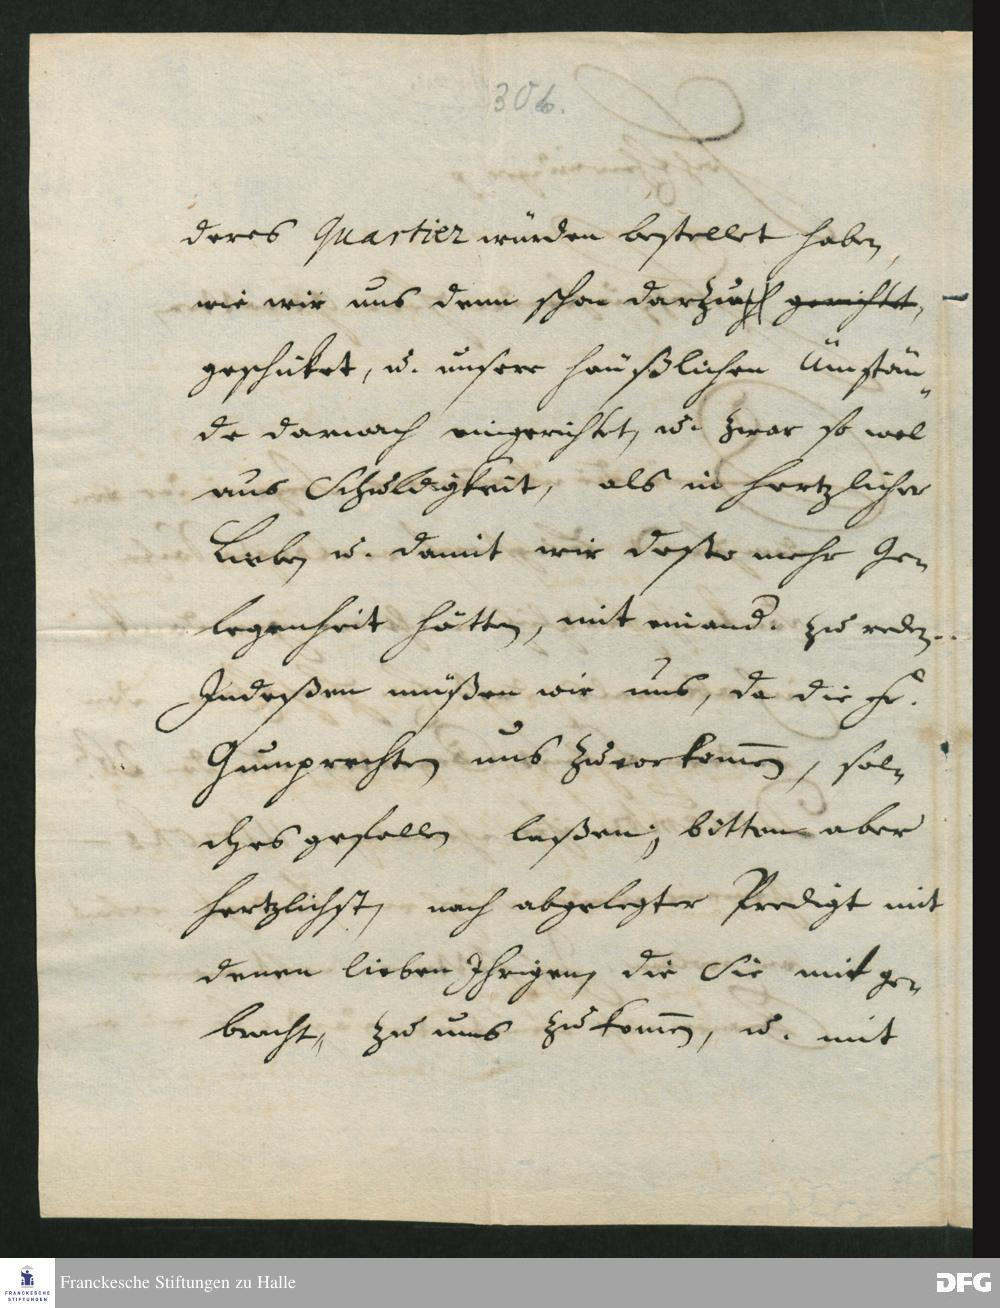 306.
deres Quartier würden bestellet haben,
wie wir uns denn schon darzu gerichtet,
geschicket, u. unsere häußlichen Umstän-
de darnach eingerichtet, u. zwar so wol
aus Schuldigkeit, als in hertzlicher
Liebe, u. damit wir desto mehr Ge-
legenheit hätten, mit einand. zu reden.
Indeßen müßen wir uns, da die Fr.
Gumprechten uns zuvorkomen, sol-
ches gefallen laßen; bitten aber
hertzlichst, nach abgelegter Predigt mit
denen lieben Ihrigen, die Sie mit ge-
bracht, zu uns zu komen, u. mit
Franckesche Stiftungen zu Halle
FRANCKESCHE
STIFTUNGEN
DFG